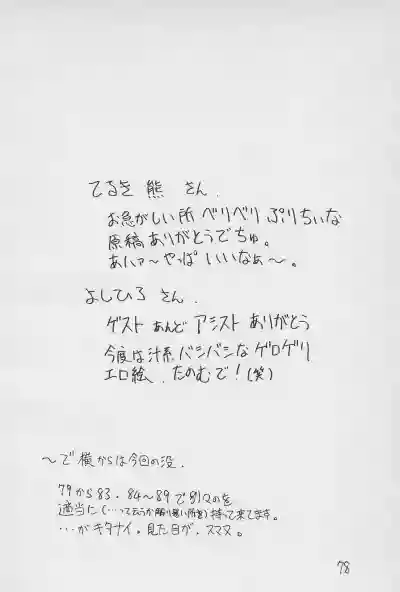 てるき熊 さん.
お急がしい所 ベリベリ ぷりちぃな
原稿ありがとうでちゅ。
あハァ〜やっぱ いいなぁ〜。
よしひろ さん.
ゲスト あんど アシスト ありがとう
今度は汁系 バシバシな ゲロゲリ
エロ絵、たのむで!(笑)
〜で 横からは今回の没.
79から83・84〜89で別々のを
適当に(…って云うか 解り易い所を)持って来てます。
…がキタナイ。見た目が、スマヌ。
78